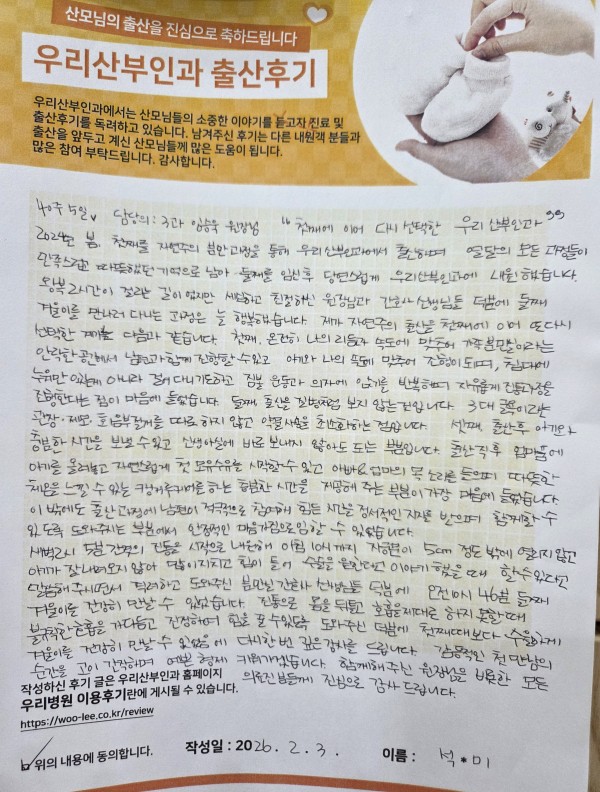 산모님의 출산을 진심으로 축하드립니다
우리산부인과 출산후기
우리산부인과에서는 산모님들의 소중한 이야기를 듣고자 진료 및
출산후기를 독려하고 있습니다. 남겨주신 후기는 다른 내원객 분들과
출산을 앞두고 계신 산모님들께 많은 도움이 됩니다.
많은 참여 부탁드립니다. 감사합니다.
40주 5일, 담당의 : 3과 임승욱 원장님 "첫째에 이어 다시 선택한 우리산부인과"
2024년 봄, 첫째를 자연주의 분만과정을 통해 우리산부인과에서 출산하며 열달의 모든 과정들이
만족스럽고 따뜻했던 기억으로 남아 둘째를 임신 후 당연스럽게 우리산부인과에 내원했습니다.
왕복 2시간이 걸리는 길이었지만 세심하고 친절하신 원장님과 간호사 선생님들 덕분에 둘째
겨울이를 만나러 다니는 과정은 늘 행복했습니다. 제가 자연주의 출산을 첫째에 이어 또 다시
선택한 계기는 다음과 같습니다. 첫째, 온전히 나의 리듬과 속도에 맞추어 가족분만실이라는
안락한 공간에서 남편과 함께 진행할 수 있고 아기와 나의 속도에 맞추어 진행이 되며, 침대에
누워만 있는게 아니라 걸어 다니기도하고 짐볼 운동과 의자에 앉기를 반복하며 자유롭게 진통과정을
진행한다는 점이 마음에 들었습니다. 둘째, 출산을 질병처럼 보지 않는 것입니다. 3대 굴욕이라는
관장·제모·회음부절개를 따로 하지 않고 약물사용을 최소화하는 점입니다. 셋째, 출산 후 아기와
충분한 시간을 보낼 수 있고 신생아실에 바로 보내지 않아도 되는 부분입니다. 출산 직후 엄마 품에
아기를 올려놓고 자연스럽게 첫 모유수유를 시작할 수 있고 아빠&엄마의 목소리를 들으며 따뜻한
체온을 느낄 수 있는 캥거루케어를 하는 충분한 시간을 제공해 주는 부분이 가장 마음에 들었습니다.
이 밖에도 출산과정에 남편이 적극적으로 참여해 힘든 시간을 정서적인 지지를 받으며 함께할 수
있도록 도와주시는 부분에서 안정적인 마음가짐으로 임할 수 있었습니다.
새벽 2시 5분 간격의 진통을 시작으로 내원해 아침 10시까지 자궁문이 5cm 정도 밖에 열리지 않고
아기가 잘 내려오지 않아 많이 지치고 힘이 들어 수술을 원한다고 이야기 했을 때 할 수 있다고
말씀해주시면서 격려하고 도와주신 분만실 간호사 선생님들 덕분에 오전 10시 46분 둘째
겨울이를 건강히 만날 수 있었습니다. 진통으로 몸을 뒤틀고 호흡을 제대로 하지 못할 때
불규칙한 호흡을 가다듬고 진정하며 힘을 줄 수 있도록 도와주신 덕분에 첫째때보다 수월하게
겨울이를 건강히 만날 수 있었음에 다시 한 번 깊은 감사를 드립니다. 감동적인 첫 만남의
순간을 고이 간직하며 예쁜 형제 키워가겠습니다. 함께해주신 원장님을 비롯한 모든
의료진분들께 진심으로 감사드립니다.
작성하신 후기 글은 우리산부인과 홈페이지
우리병원 이용후기란에 게시될 수 있습니다.
https://woo-lee.co.kr/review
위의 내용에 동의합니다.
작성일 : 2026. 2. 3.
이름 : 석*미